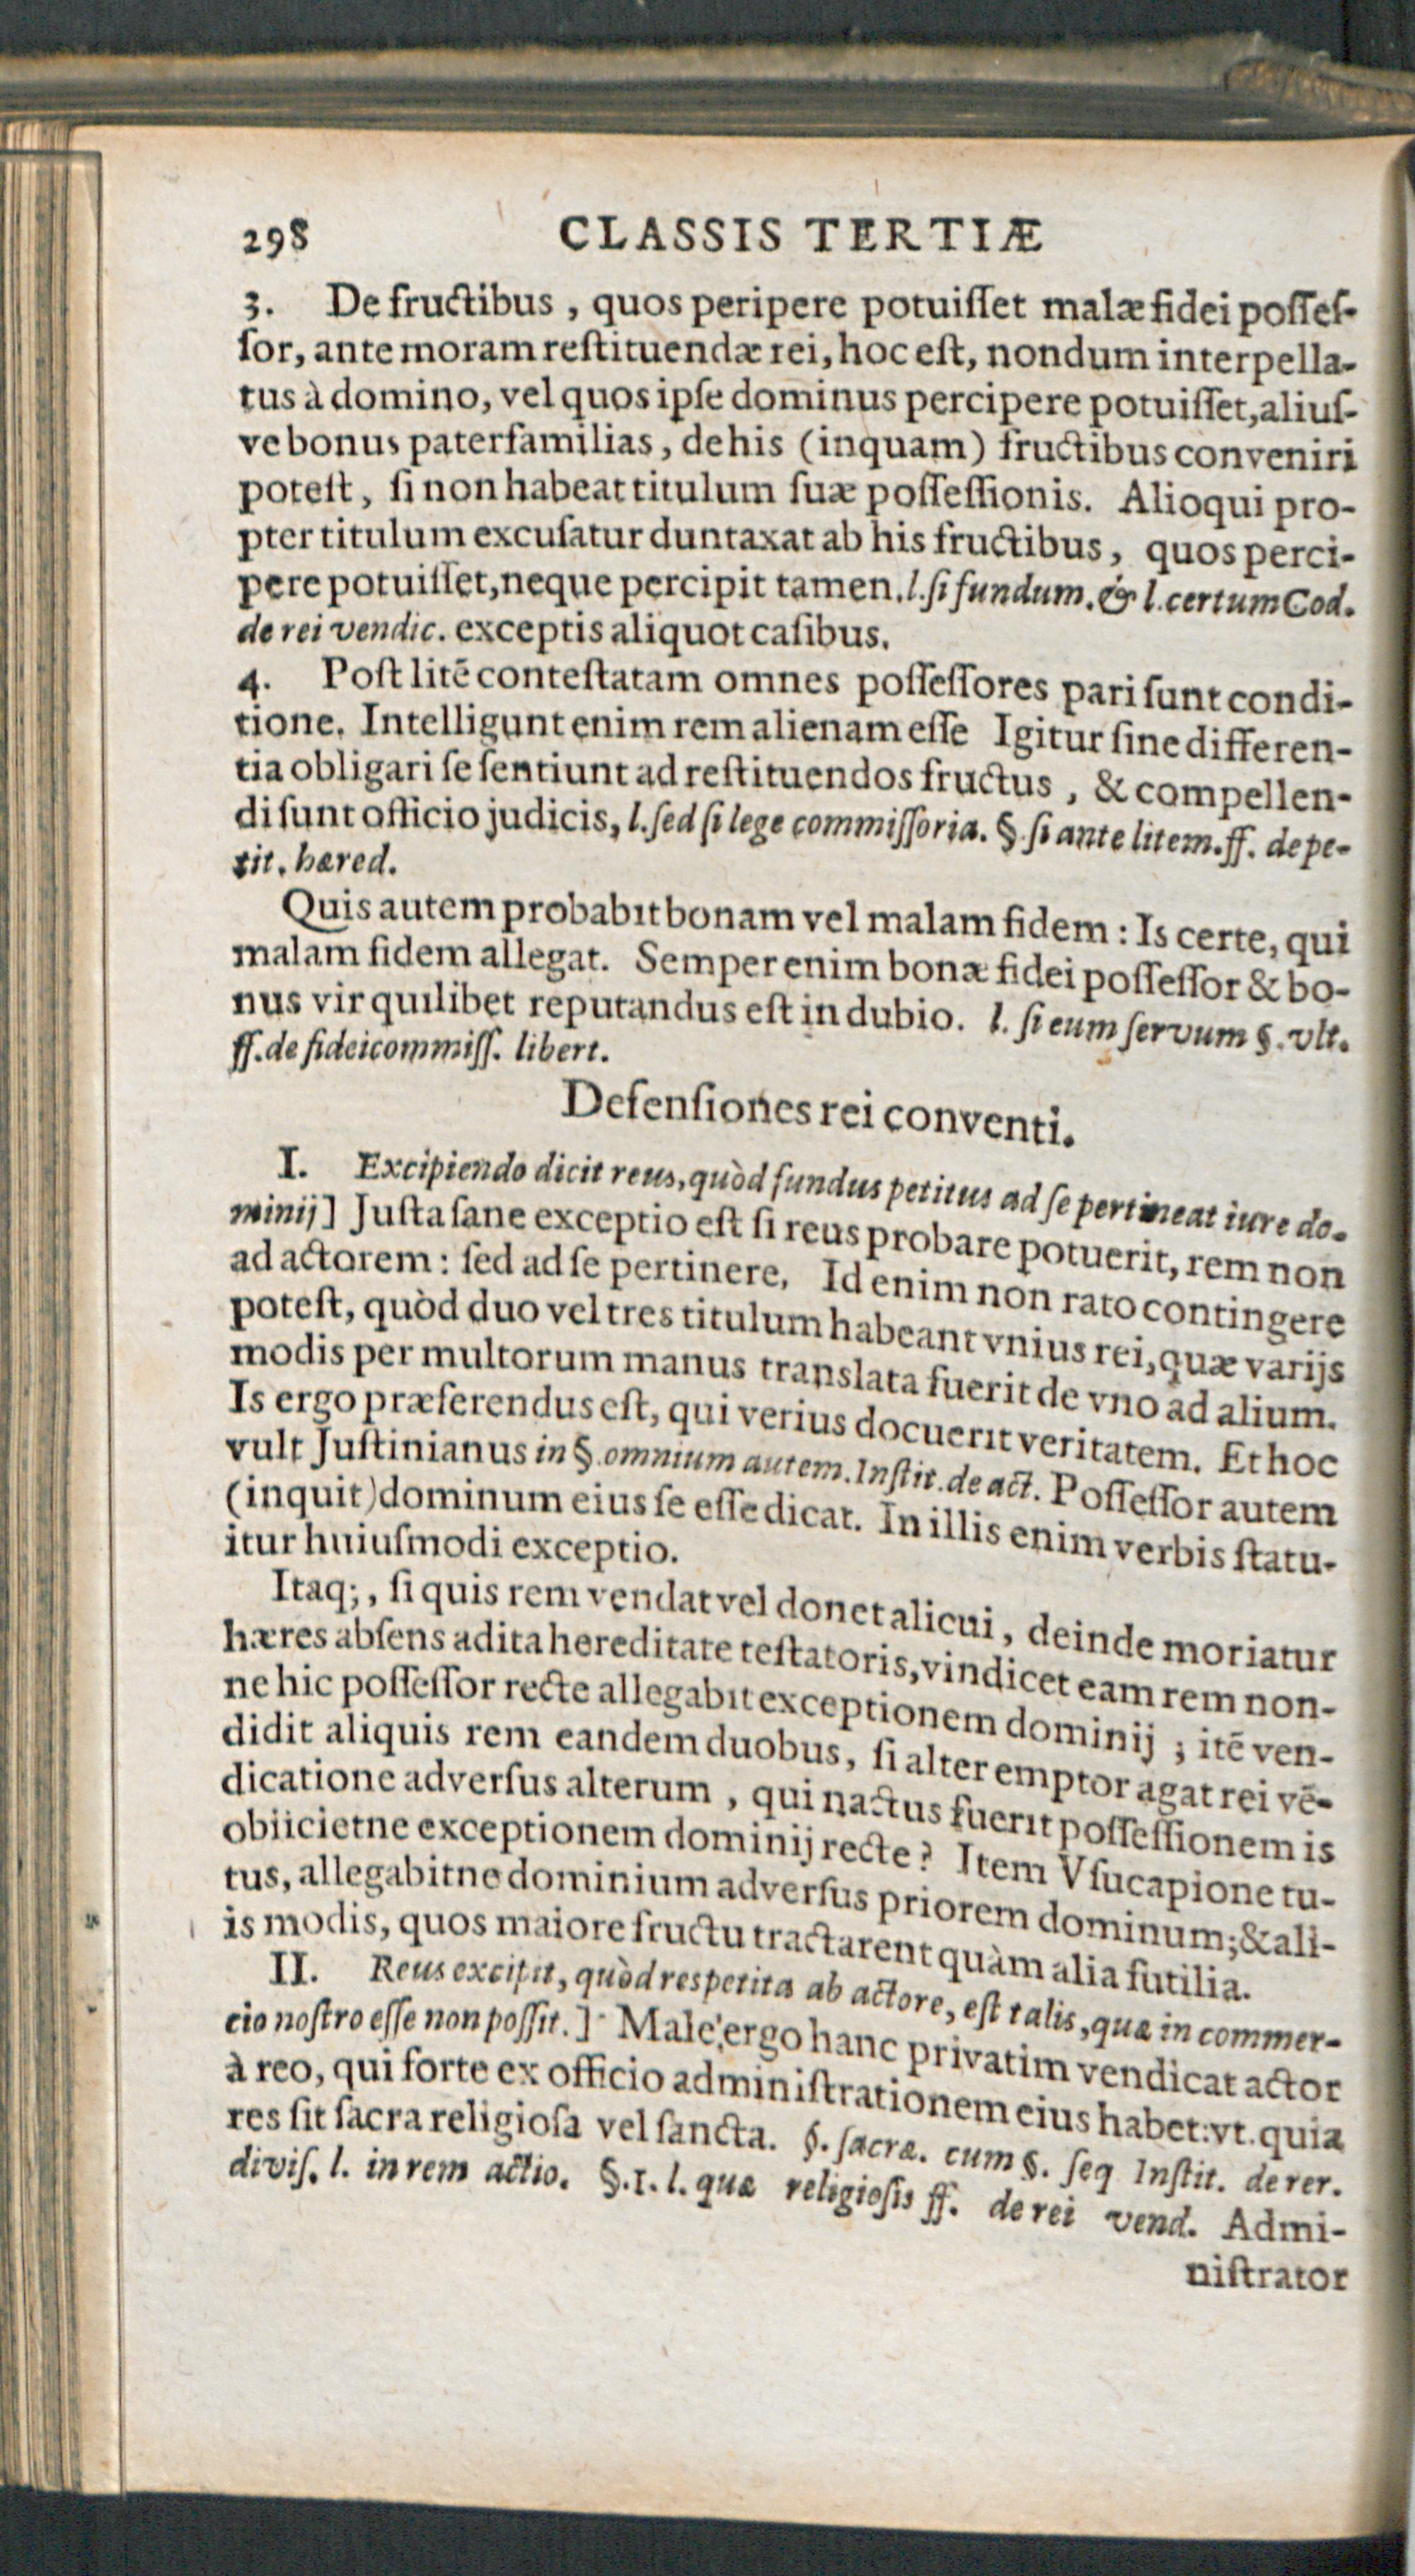 298 CLASSIS TERTIÆ
3. De fructibus, quos peripere potuiſſet malæ fidei poſſeſ-
ſor, ante moram reſtituendæ rei, hoc eſt, nondum interpella-
tus à domino, vel quos ipſe dominus percipere potuiſſet, aliuſ-
ve bonus paterfamilias, de his (inquam) fructibus conveniri
poteſt, ſi non habeat titulum ſuæ poſſeſſionis. Alioqui pro-
pter titulum excuſatur duntaxat ab his fructibus, quos perci-
pere potuiſſet, neque percipit tamen. l. ſi fundum. & l. certum Cod.
de rei vendic. exceptis aliquot caſibus.
4. Poſt litē conteſtatam omnes poſſeſſores pari ſunt condi-
tione. Intelligunt enim rem alienam eſſe Igitur ſine differen-
tia obligari ſe ſentiunt ad reſtituendos fructus, & compellen-
di ſunt officio judicis, l. ſed ſi lege commiſſoria. § ſi ante litem. ff. de pe-
tit. hæred.
Quis autem probabit bonam vel malam fidem: Is certe, qui
malam fidem allegat. Semper enim bonæ fidei poſſeſſor & bo-
nus vir quilibet reputandus eſt in dubio. l. ſi eum ſervum §. vlt.
ff. de fideicommiſſ. libert.
Defenſiones rei conventi.
I. Excipiendo dicit reus, quòd fundus petitus ad ſe pertineat iure do-
minij] Juſta ſane exceptio eſt ſi reus probare potuerit, rem non
ad actorem: ſed ad ſe pertinere. Id enim non rato contingere
poteſt, quòd duo vel tres titulum habeant vnius rei, quæ varijs
modis per multorum manus translata fuerit de vno ad alium.
Is ergo præferendus eſt, qui verius docuerit veritatem. Et hoc
vult Juſtinianus in § omnium autem. Inſtit. de act. Poſſeſſor autem
(inquit) dominum eius ſe eſſe dicat. In illis enim verbis ſtatu-
itur huiuſmodi exceptio.
Itaq;, ſi quis rem vendat vel donet alicui, deinde moriatur
hæres abſens adita hereditate teſtatoris, vindicet eam rem non-
ne hic poſſeſſor recte allegabit exceptionem dominij; itē ven-
didit aliquis rem eandem duobus, ſi alter emptor agat rei vē-
dicatione adverſus alterum, qui nactus fuerit poſſeſſionem is
obiicietne exceptionem dominij recte? Item Vſucapione tu-
tus, allegabitne dominium adverſus priorem dominum; & ali-
is modis, quos maiore fructu tractarent quàm alia futilia.
II. Reus excipit, quòd res petita ab actore, eſt talis, quæ in commer-
cio noſtro eſſe non poſſit.] Male ergo hanc privatim vendicat actor
à reo, qui forte ex officio adminiſtrationem eius habet: vt. quia
res ſit ſacra religioſa vel ſancta. §. ſacræ. cum §. ſeq Inſtit. de rer.
diviſ. l. in rem actio. §. 1. l. quæ religioſis ff. de rei vend. Admi-
niſtrator